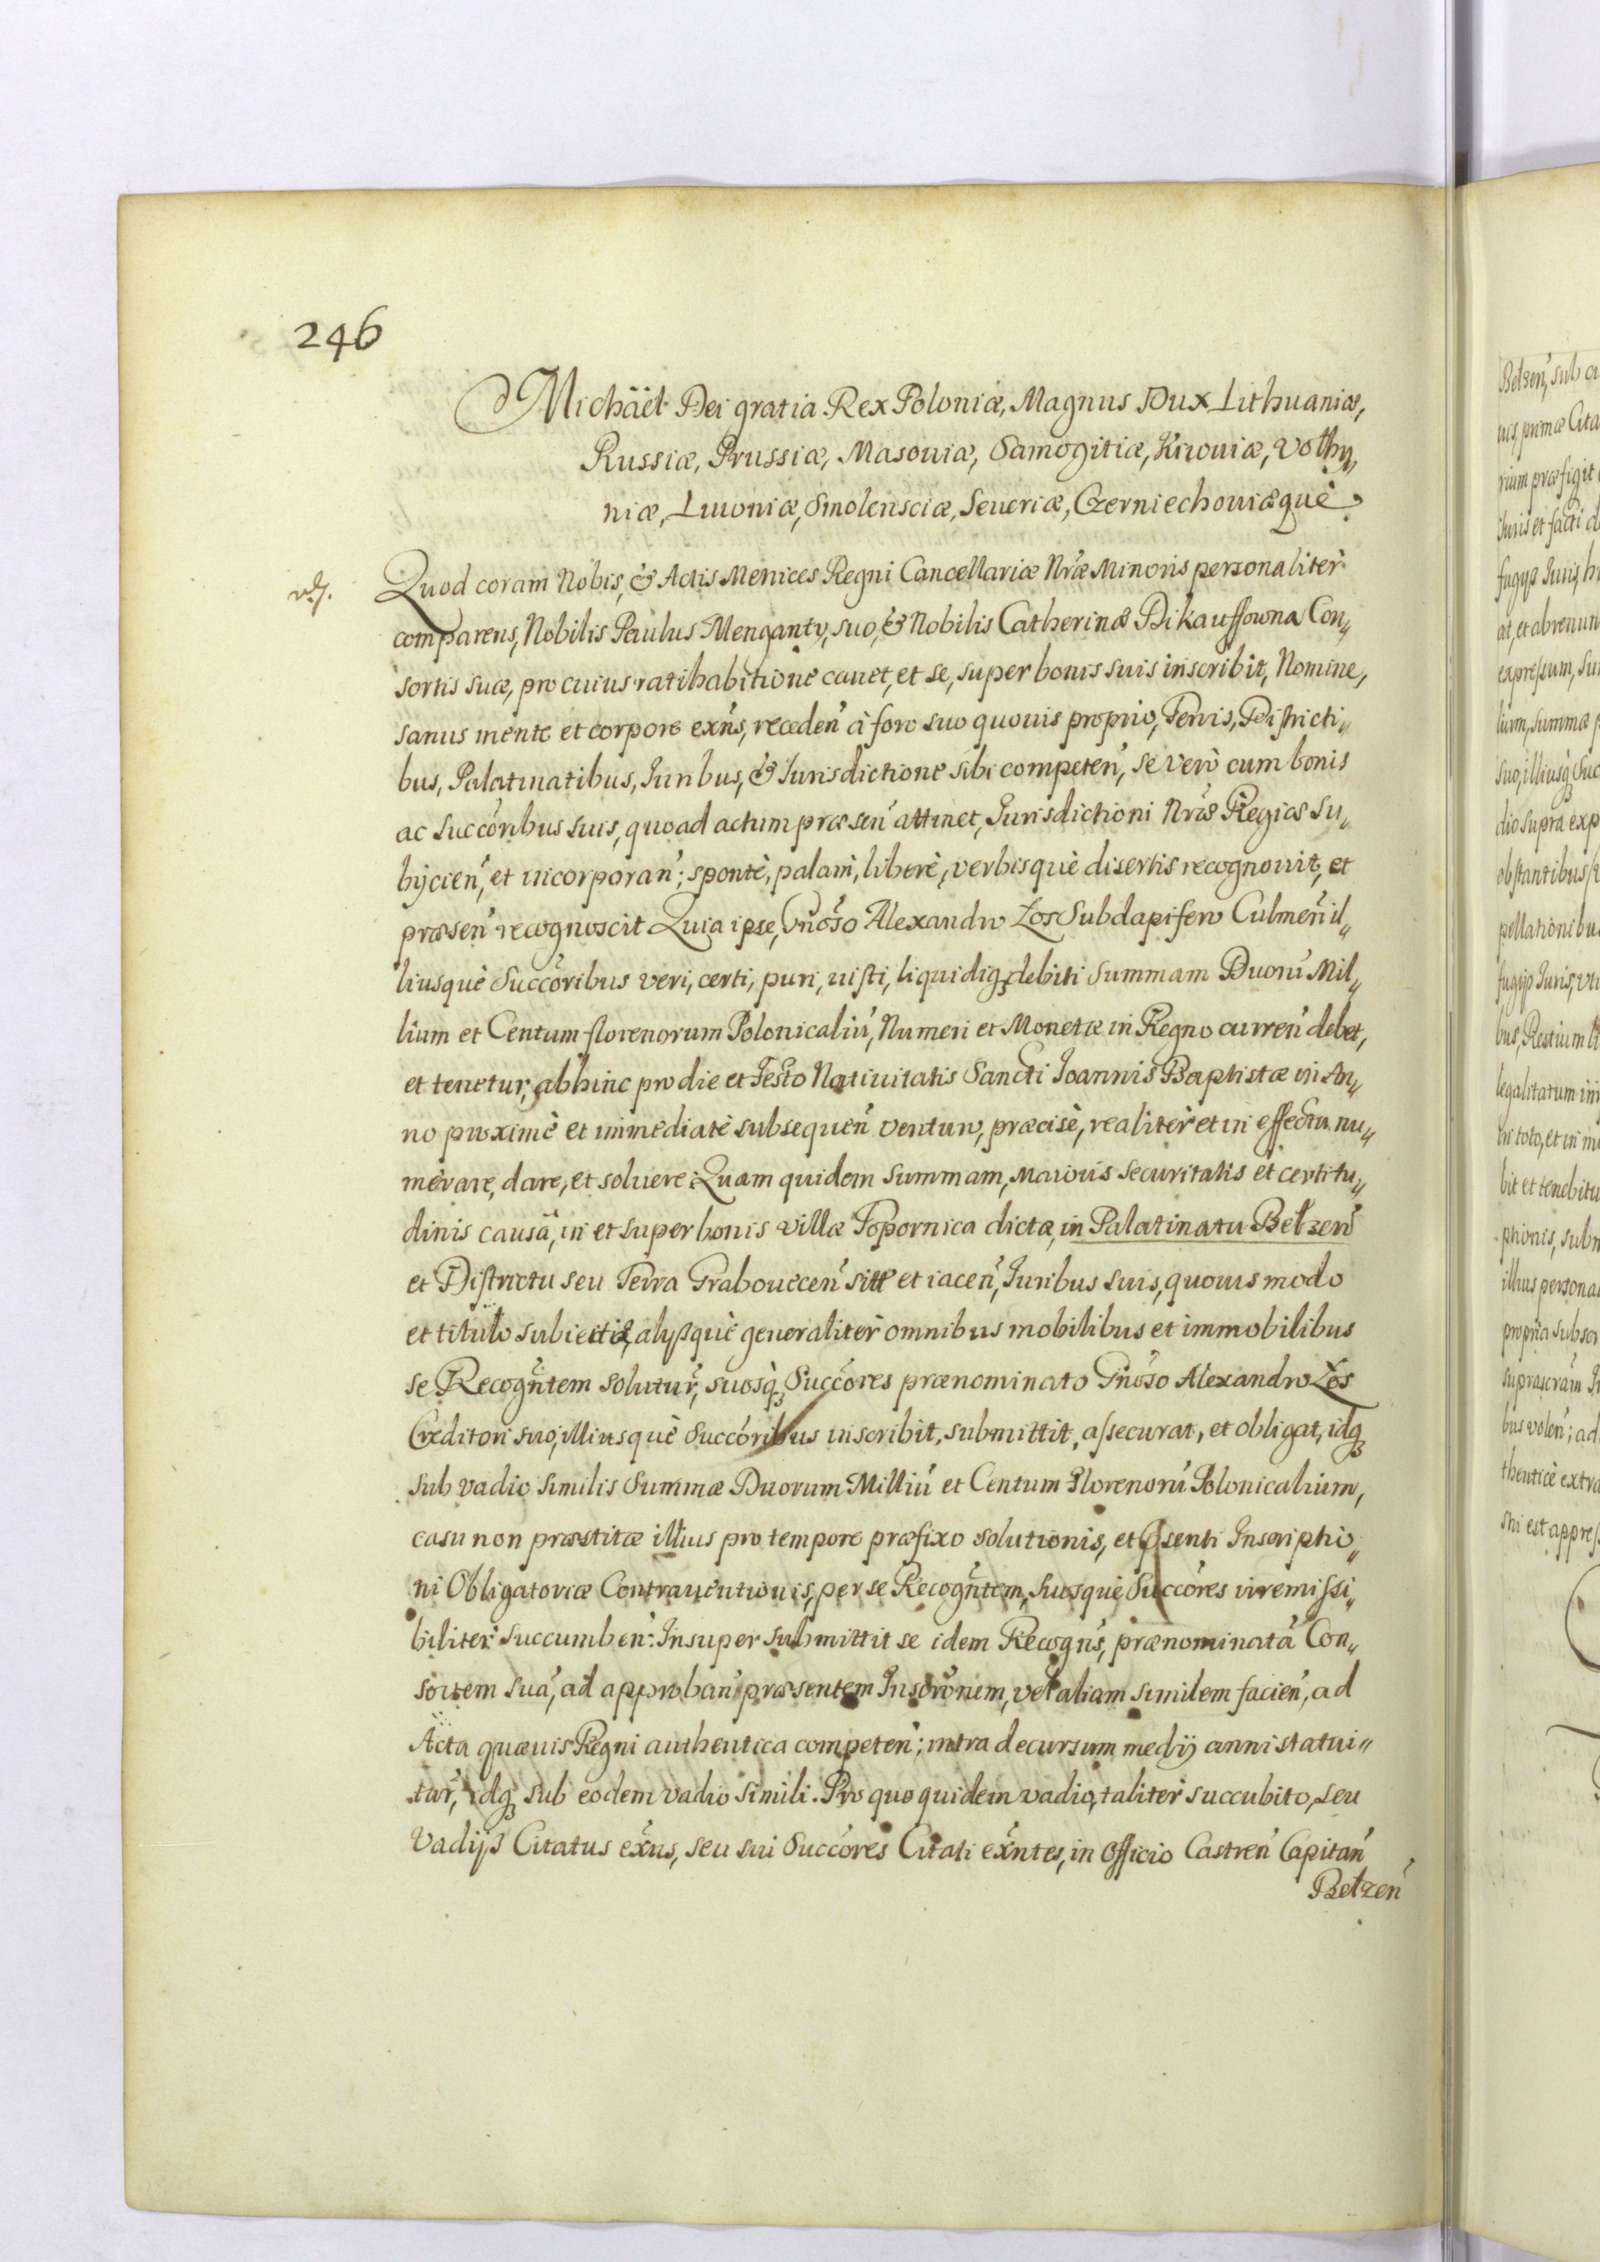 246
Michäel Dei gratia Rex Poloniæ, Magnus Dux Lithuaniæ,
Russiæ, Prussiæ, Masouiæ, Samogitiæ, Kiiouiæ, Volhy„
niæ, Liuoniæ, Smolensciæ, Seueriæ, Czerniechouiæquè
Quod coram Nobis, & Actis Metrices Regni Cancellariæ Nr̃æ Minoris personalitèr
comparens, Nobilis Paulus Menganty, suo, & Nobilis Catherinæ Pikauffowna Con„
sortis suæ, pro cuius ratihabitione cauet, et se, super bonis suis inscribit, Nomine,
sanus mente et corpore exñs, receden̄ à foro suo quouis proprio, Terris, Districti„
bus, Palatinatibus, Iuribus, & Iurisdictione sibi competen̄, se verò cum bonis
ac succõribus suis, quoad actum præsen̄ attinet, Iurisdictioni Nr̃æ Regiæ su„
bijcien̄, et incorporan̄; spontè, palam̀, liberè, verbisquè disertis recognouit, et
præsen̄ recognoscit Quia ipse, Gñoso Alexandro Zos Subdapifero Culmen̄ il„
liusquè Succõribus veri, certi, puri, iusti, liquidiq́ debiti summam Duorū Mil„
lium et Centum florenorum Polonicaliū, Numeri et Monetæ in Regno curren̄ debet,
et tenetur, abhinc pro die et Festo Natiuitatis Sancti Ioannis Baptistæ in An„
no proximè et immediatè subsequen̄ venturo, præcisè, realitèr et in effectu nu„
merare, dare, et soluere: Quam quidem summam, maioris securitatis et certitu„
dinis causâ, in et super bonis villæ Topornica dictæ, in Palatinatu Belzen̄
et Districtu seu Terra Grabouecen̄ sitæ et iacen̄, Iuribus suis, quouis modo
et titulo subiectis, alijsquè generalitèr omnibus mobilibus et immobilibus
se Recogñtem solutur̃, suosq́ Succõres prænominato Gñoso Alexandro Zos
Creditori suo, illiusquè Succõribus inscribit, submittit, assecurat, et obligat, idq́
sub vadio similis summæ Duorum Milliū et Centum Florenorū Polonicalium,
casu non præstitæ illius pro tempore præfixo solutionis, et p̃senti Inscriptio„
ni Obligatoriæ Contrauentionis, per se Recogñtem, suosquè Succõres irremissi„
bilitèr succumben̄: Insuper submittit se idem Recogñs, prænominatā Con„
sortem suā, ad approban̄ præsentem Inscr̃onem, vel aliam similem facien̄, ad
Acta quæuis Regni authentica competen̄; intra decursum medij anni statui„
tur̃, idq́ sub eodem vadio simili. Pro quo quidem vadio, talitèr succubito, seu
Vadijs Citatus exñs, seu sui Succõres Citati exñtes, in Officio Castren̄ Capitan̄
Belzen̄